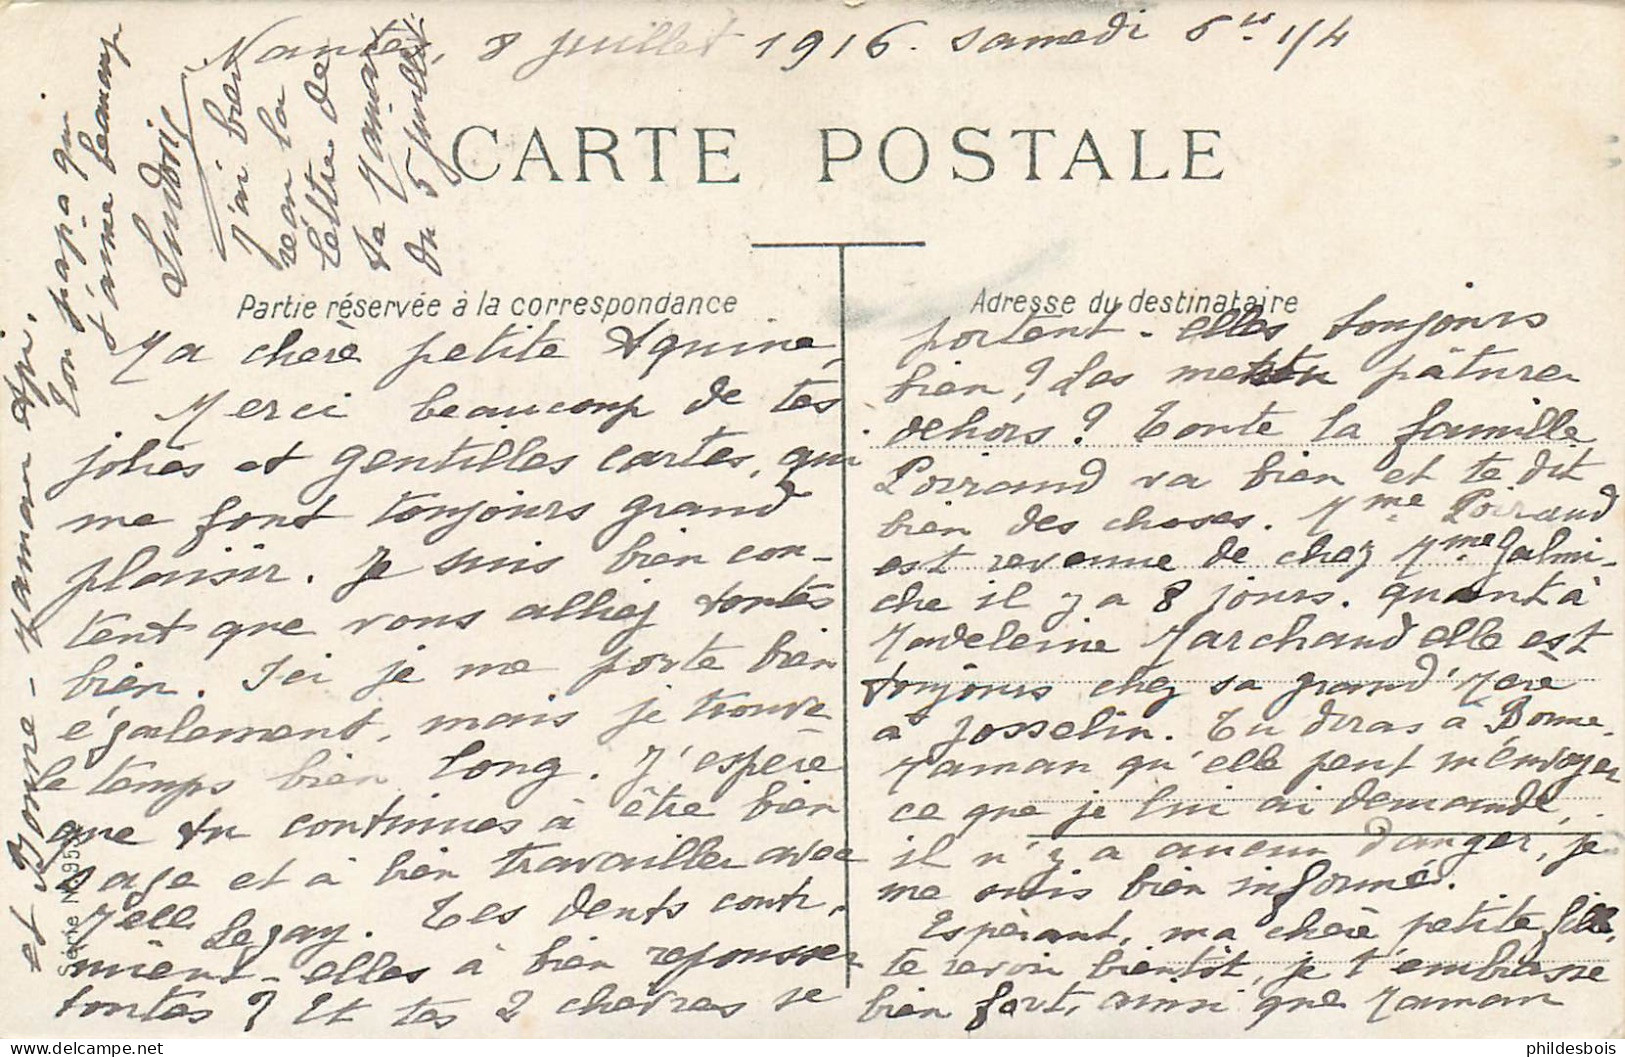 Nantes, 8 juillet 1916. samedi 6 hes 1/4
CARTE POSTALE
Partie réservée à la correspondance
Adresse du destinataire
Ma chère petite Aquine,
Merci beaucoup de tes
jolies et gentilles cartes, qui
me font toujours grand
plaisir. Je suis bien con-
tent que vous alliez toutes
bien. Ici je me porte bien
également, mais je trouve
le temps bien long. J'espère
que tu continues à être bien
sage et à bien travailler avec
Melle Legay. Tes dents conti-
nuent-elles à bien repousser
toutes ? Et tes 2 chèvres se
portent-elles toujours
bien ? Les met-on pâturer
dehors ? Toute la famille
Poiraud va bien et te dit
bien des choses. Mme Poiraud
est revenue de chez Mme Jalmi-
che il y a 8 jours. quant à
Madeleine Marchaud elle est
toujours chez sa grand'Mère
à Josselin. Tu diras à Bonne
Maman qu'elle peut m'envoyer
ce que je lui ai demandé,
il n'y a aucun danger, je
me suis bien informé.
Espérant, ma chère petite fille,
te revoir bientôt, je t'embrasse
bien fort, ainsi que Maman
et Bonne-Maman
Ton papa qui
t'aime beaucoup
Ludovic
J'ai bien
reçu la
lettre de
ta Maman
du 5 juillet
Série No 953
phildesbois